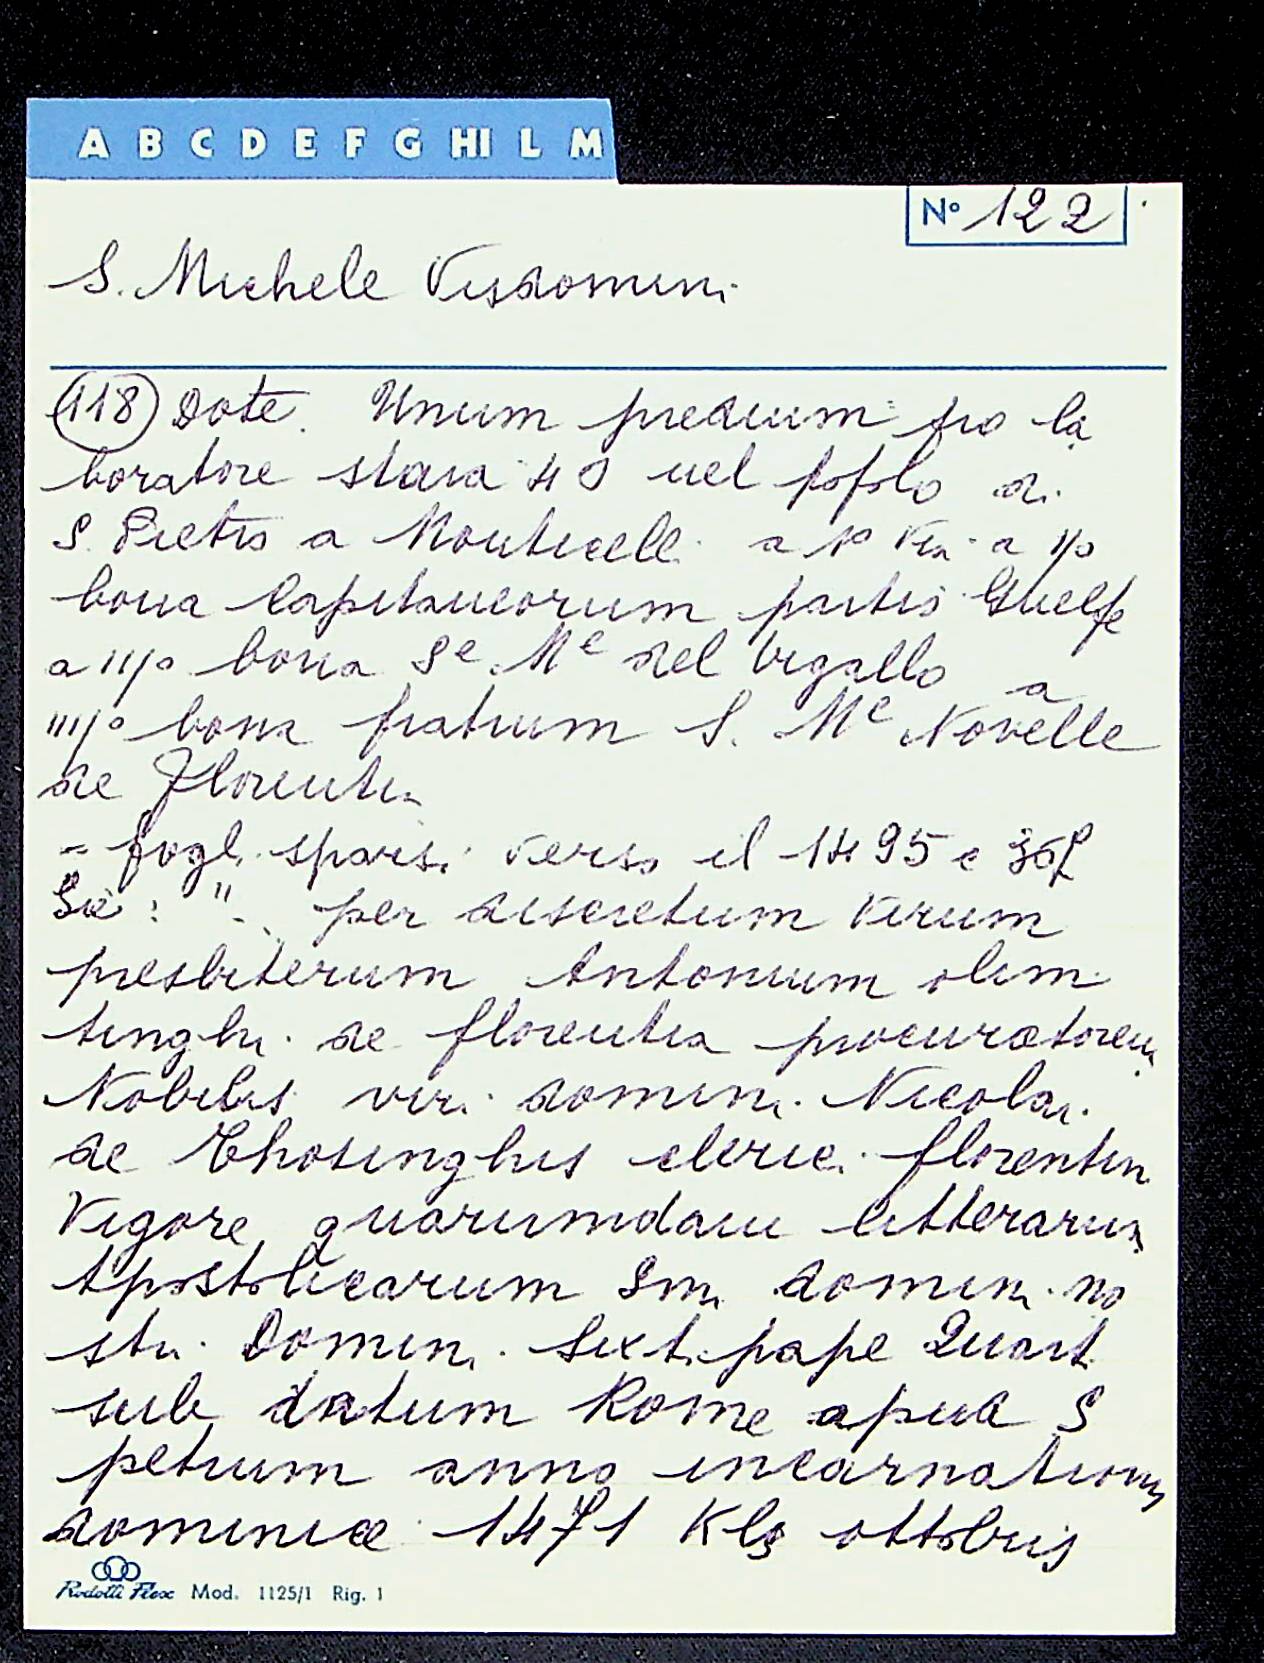 A B C D E F G HI L M
N° 122
S. Michele Visdomini
118 Dote. Unum predium pro la
boratore staia 40 nel popolo di
S. Pietro a Monticelli a 1° via a 11/o
bona Capitaneorum partis Guelfe
a 111/o bona Se Me del bigallo a
1111/o bona fratrum S. Me Novelle
de Florentia
- fogli sparsi verso il 1495 e
" per discretum virum
presbiterum Antonium olim
tinghi de florentia procuratorem
Nobilis viri domini Nicolai
de Thosinghis clerici florentin
vigore quarumdam litterarum
Apostolicarum Smi domini no
stri Domini Sixti pape Quarti
sub datum Rome apud S
petrum anno incarnationis
dominice 1471 Kls ottobris
Rodolti Flex Mod. 1125/1 Rig. 1